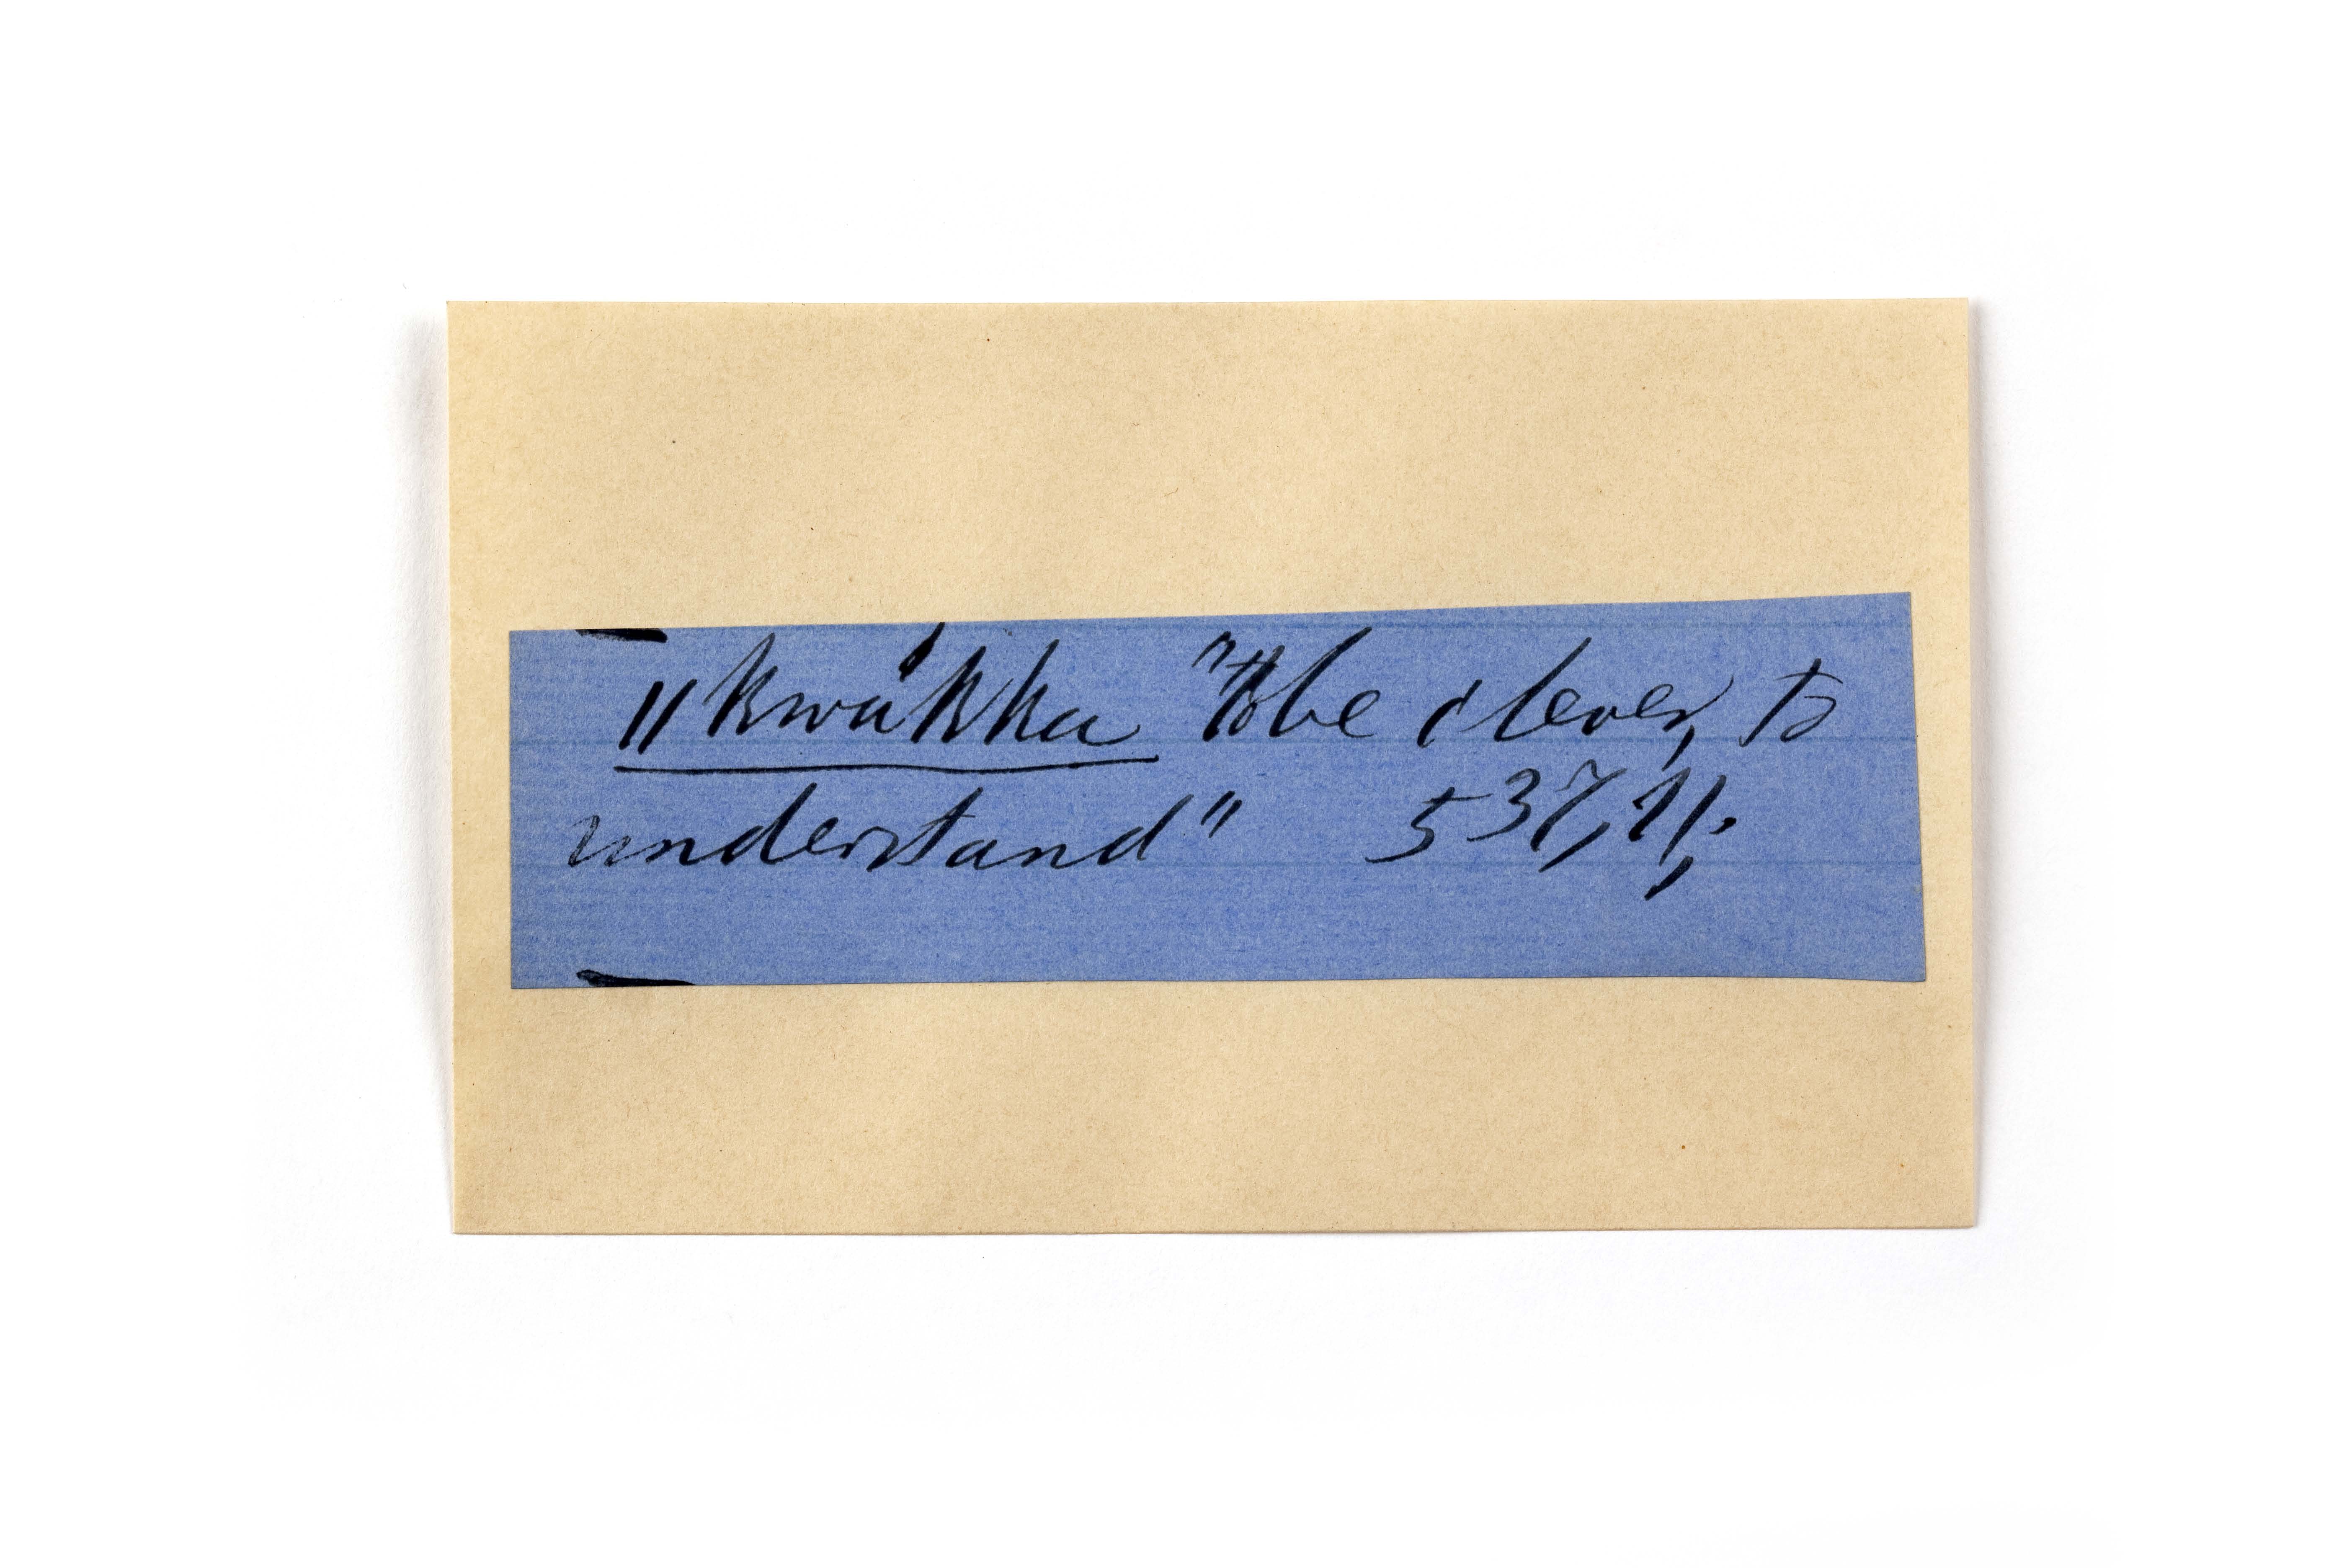 ǁkwákka "to be clever, to
understand" 537, 11,.